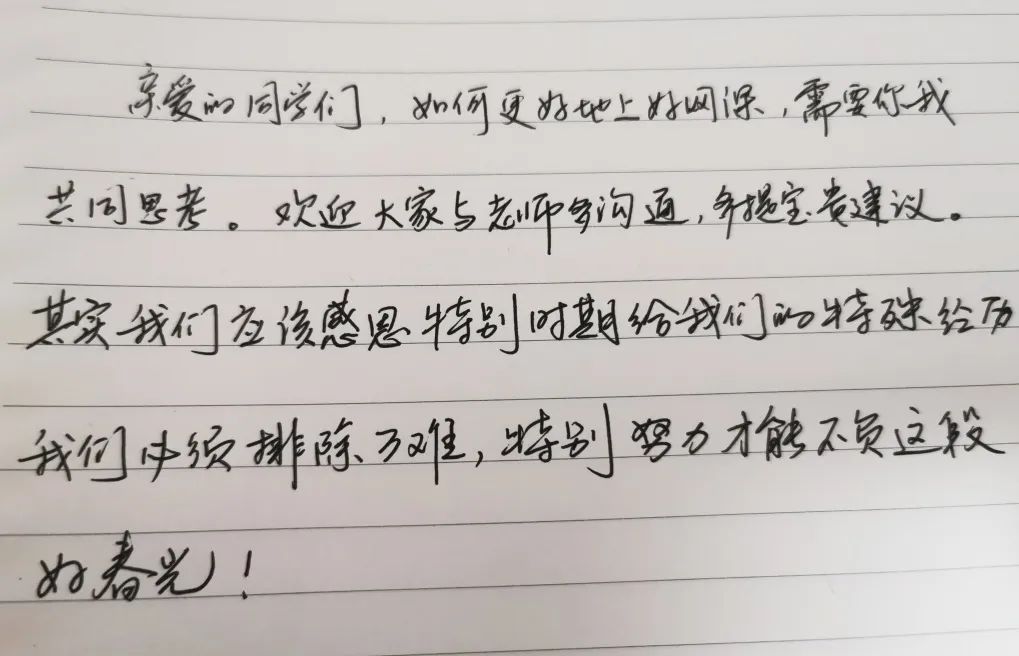 亲爱的同学们，如何更好地上好网课，需要你我
共同思考。欢迎大家与老师多沟通，多提宝贵建议。
其实我们应该感恩特别时期给我们的特殊经历
我们必须排除万难，特别努力才能不负这段
好春光！